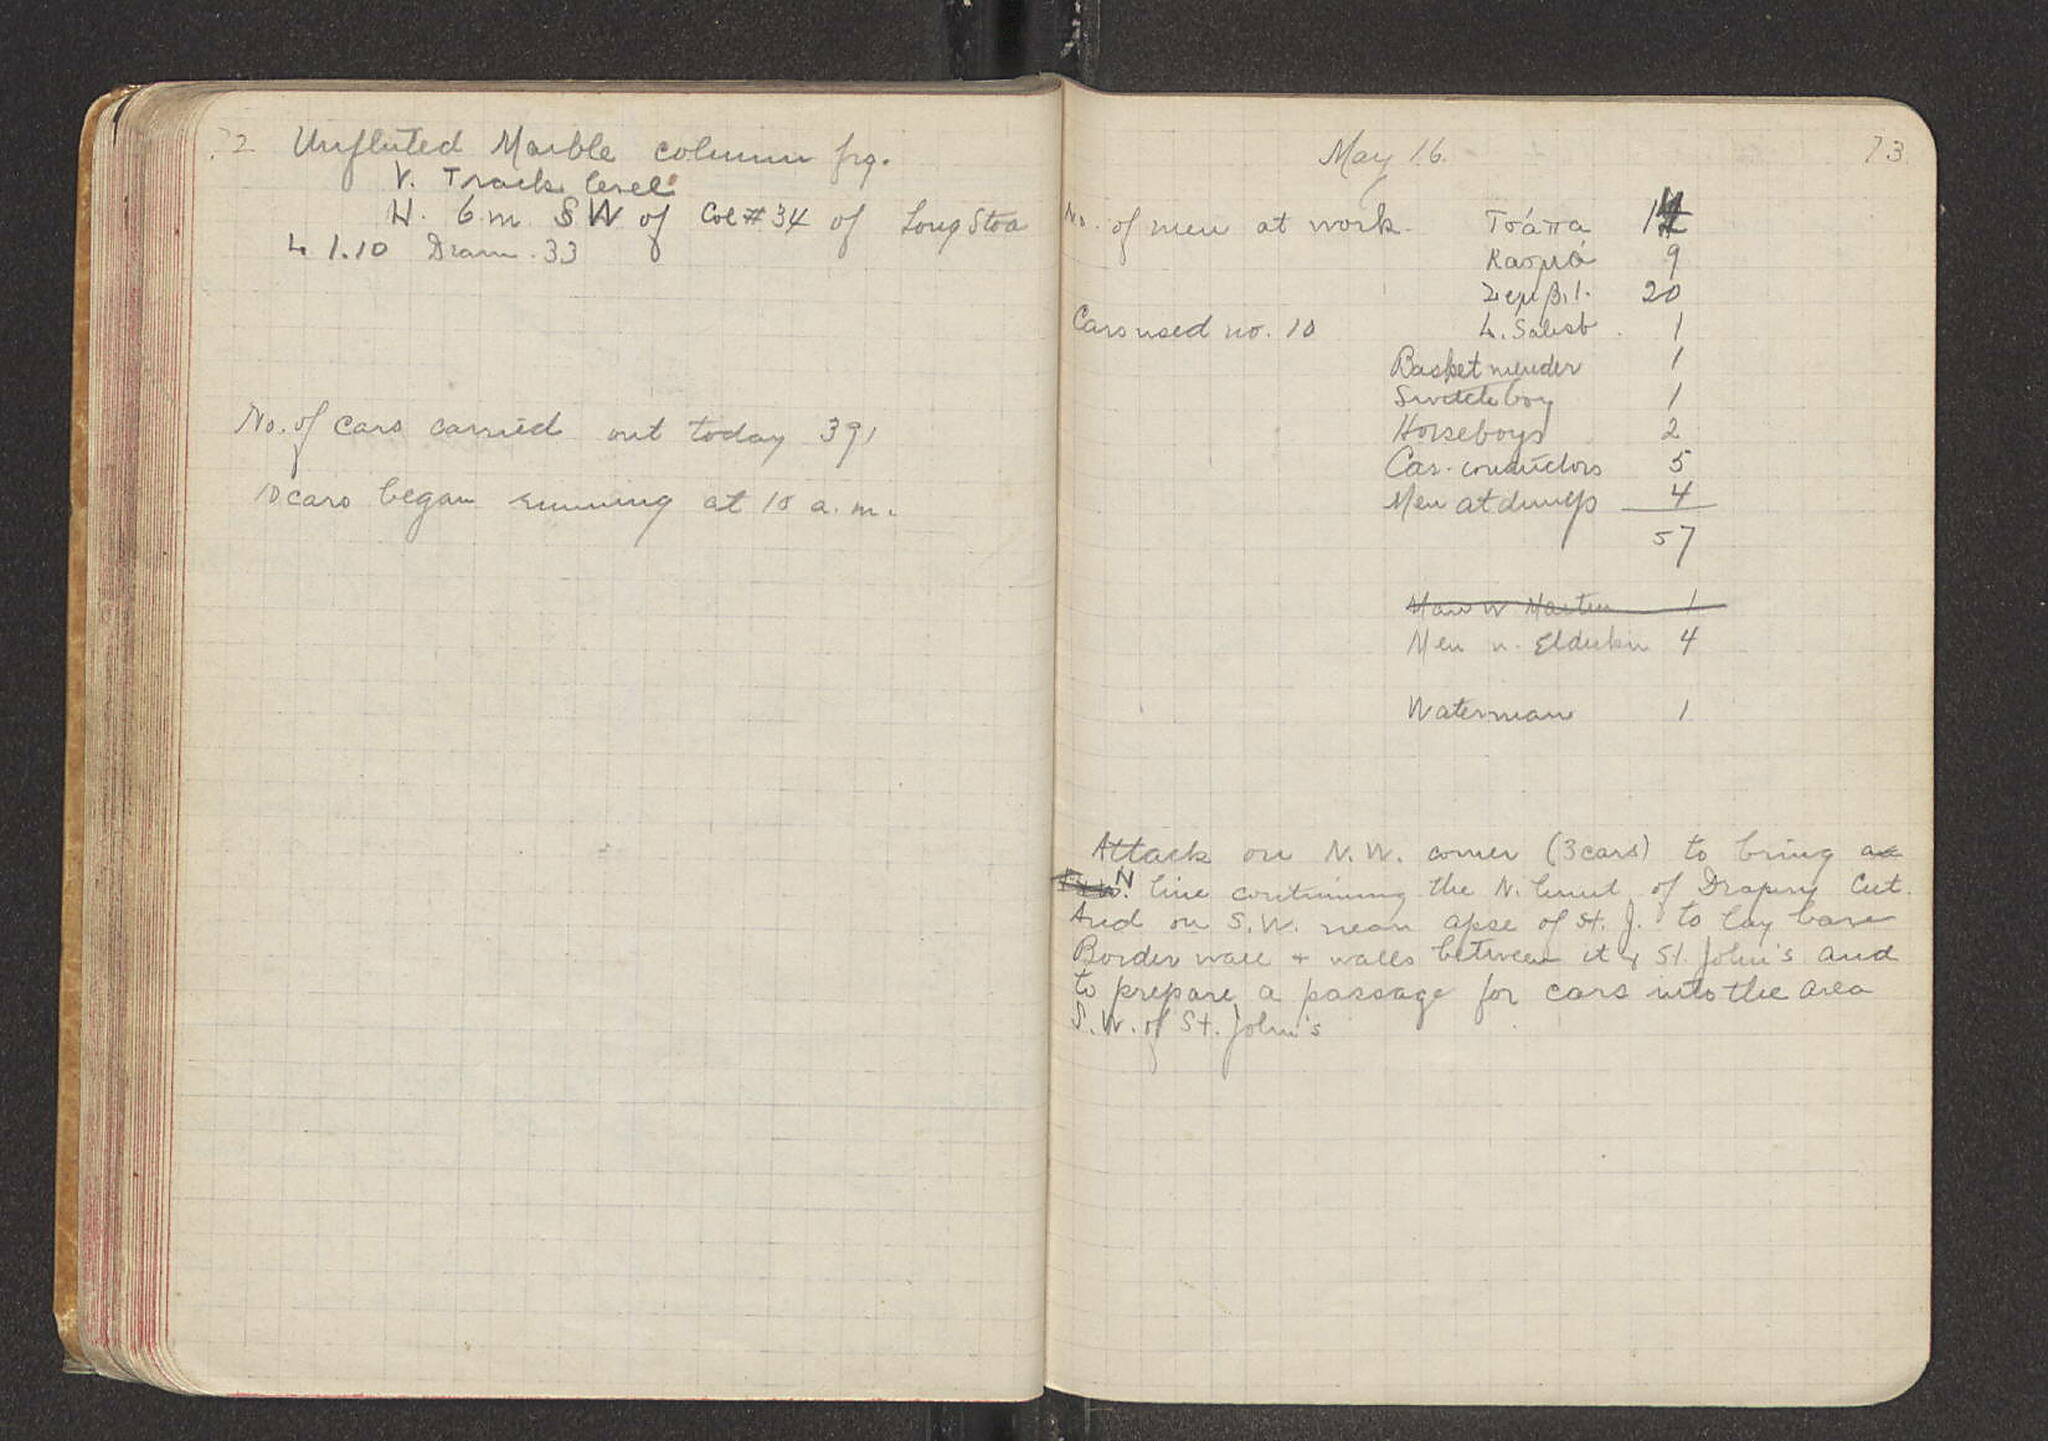 72
Unfluted Marble column frg.
V. Track level
H. 6 m SW of Col #34 of Long Stoa
L 1.10 Diam .33
No. of cars carried out today 391
10 cars began running at 10 a.m.
May 16. 73
No. of men at work. Τσάπα
Κασμά 9
Ζεμβιλ. 20
Cars used no. 10 1
Basket mender 1
Switch boy 1
Horseboys 2
Car-conductors 5
Men at dumps 4
57
Man w 1
Men w. Elderkin 4
Waterman 1
Attack on N.W. corner (3 cars) to bring
N line continuing the N. limit of Drapery Cut.
And on S.W. near apse of St. J. to lay bare
Border wall + walls between it & St. John's and
to prepare a passage for cars into the area
S.W. of St. John's